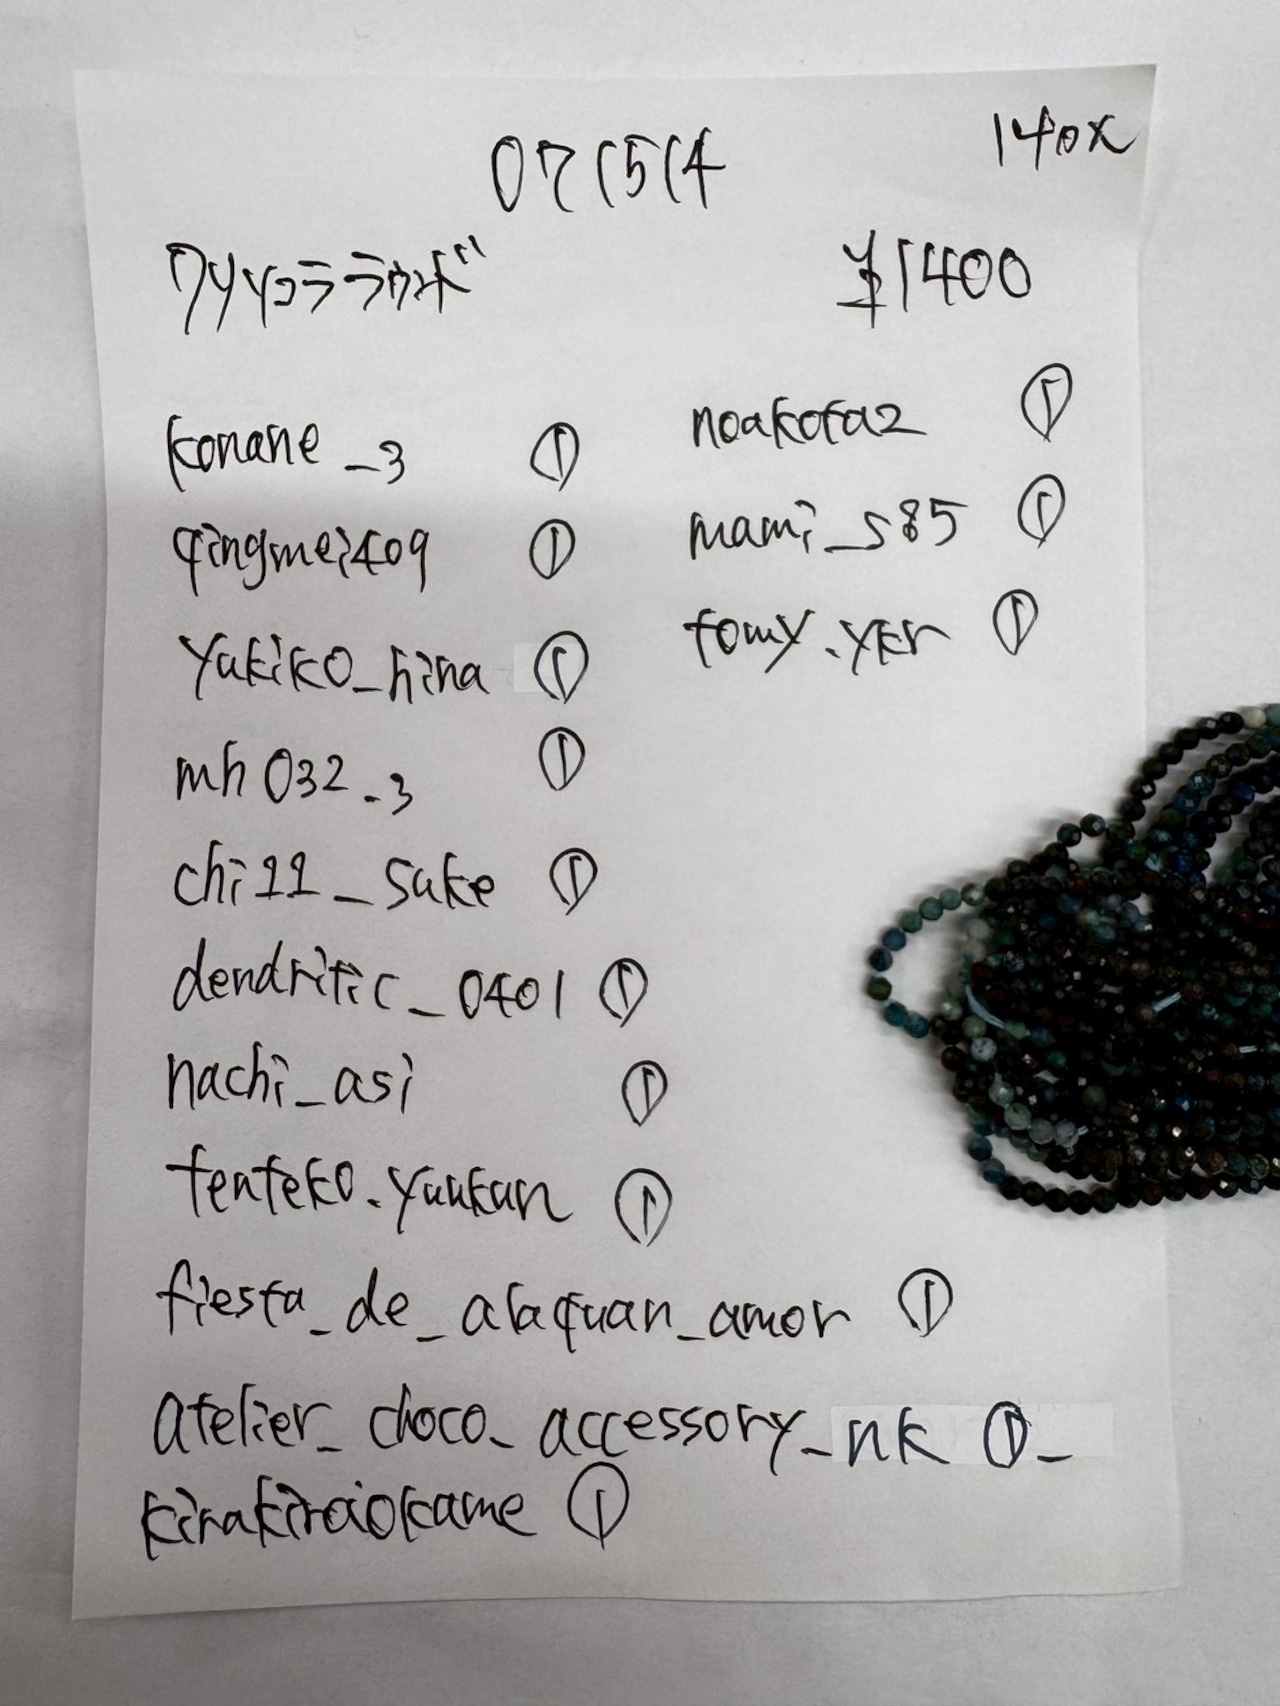 071514
140x
クリソコララウンド
¥1400
konane_3 ①
qingmei409 ①
yukiko_hina ①
mh032_3 ①
chi11_sake ①
dendritic_0401 ①
nachi_asi ①
tenteko.yuukun ①
fiesta_de_alaquan_amor ①
atelier_choco_accessory_nk ①_
kirakiraokame ①
noakota2 ①
mami_s85 ①
tomy.ykr ①